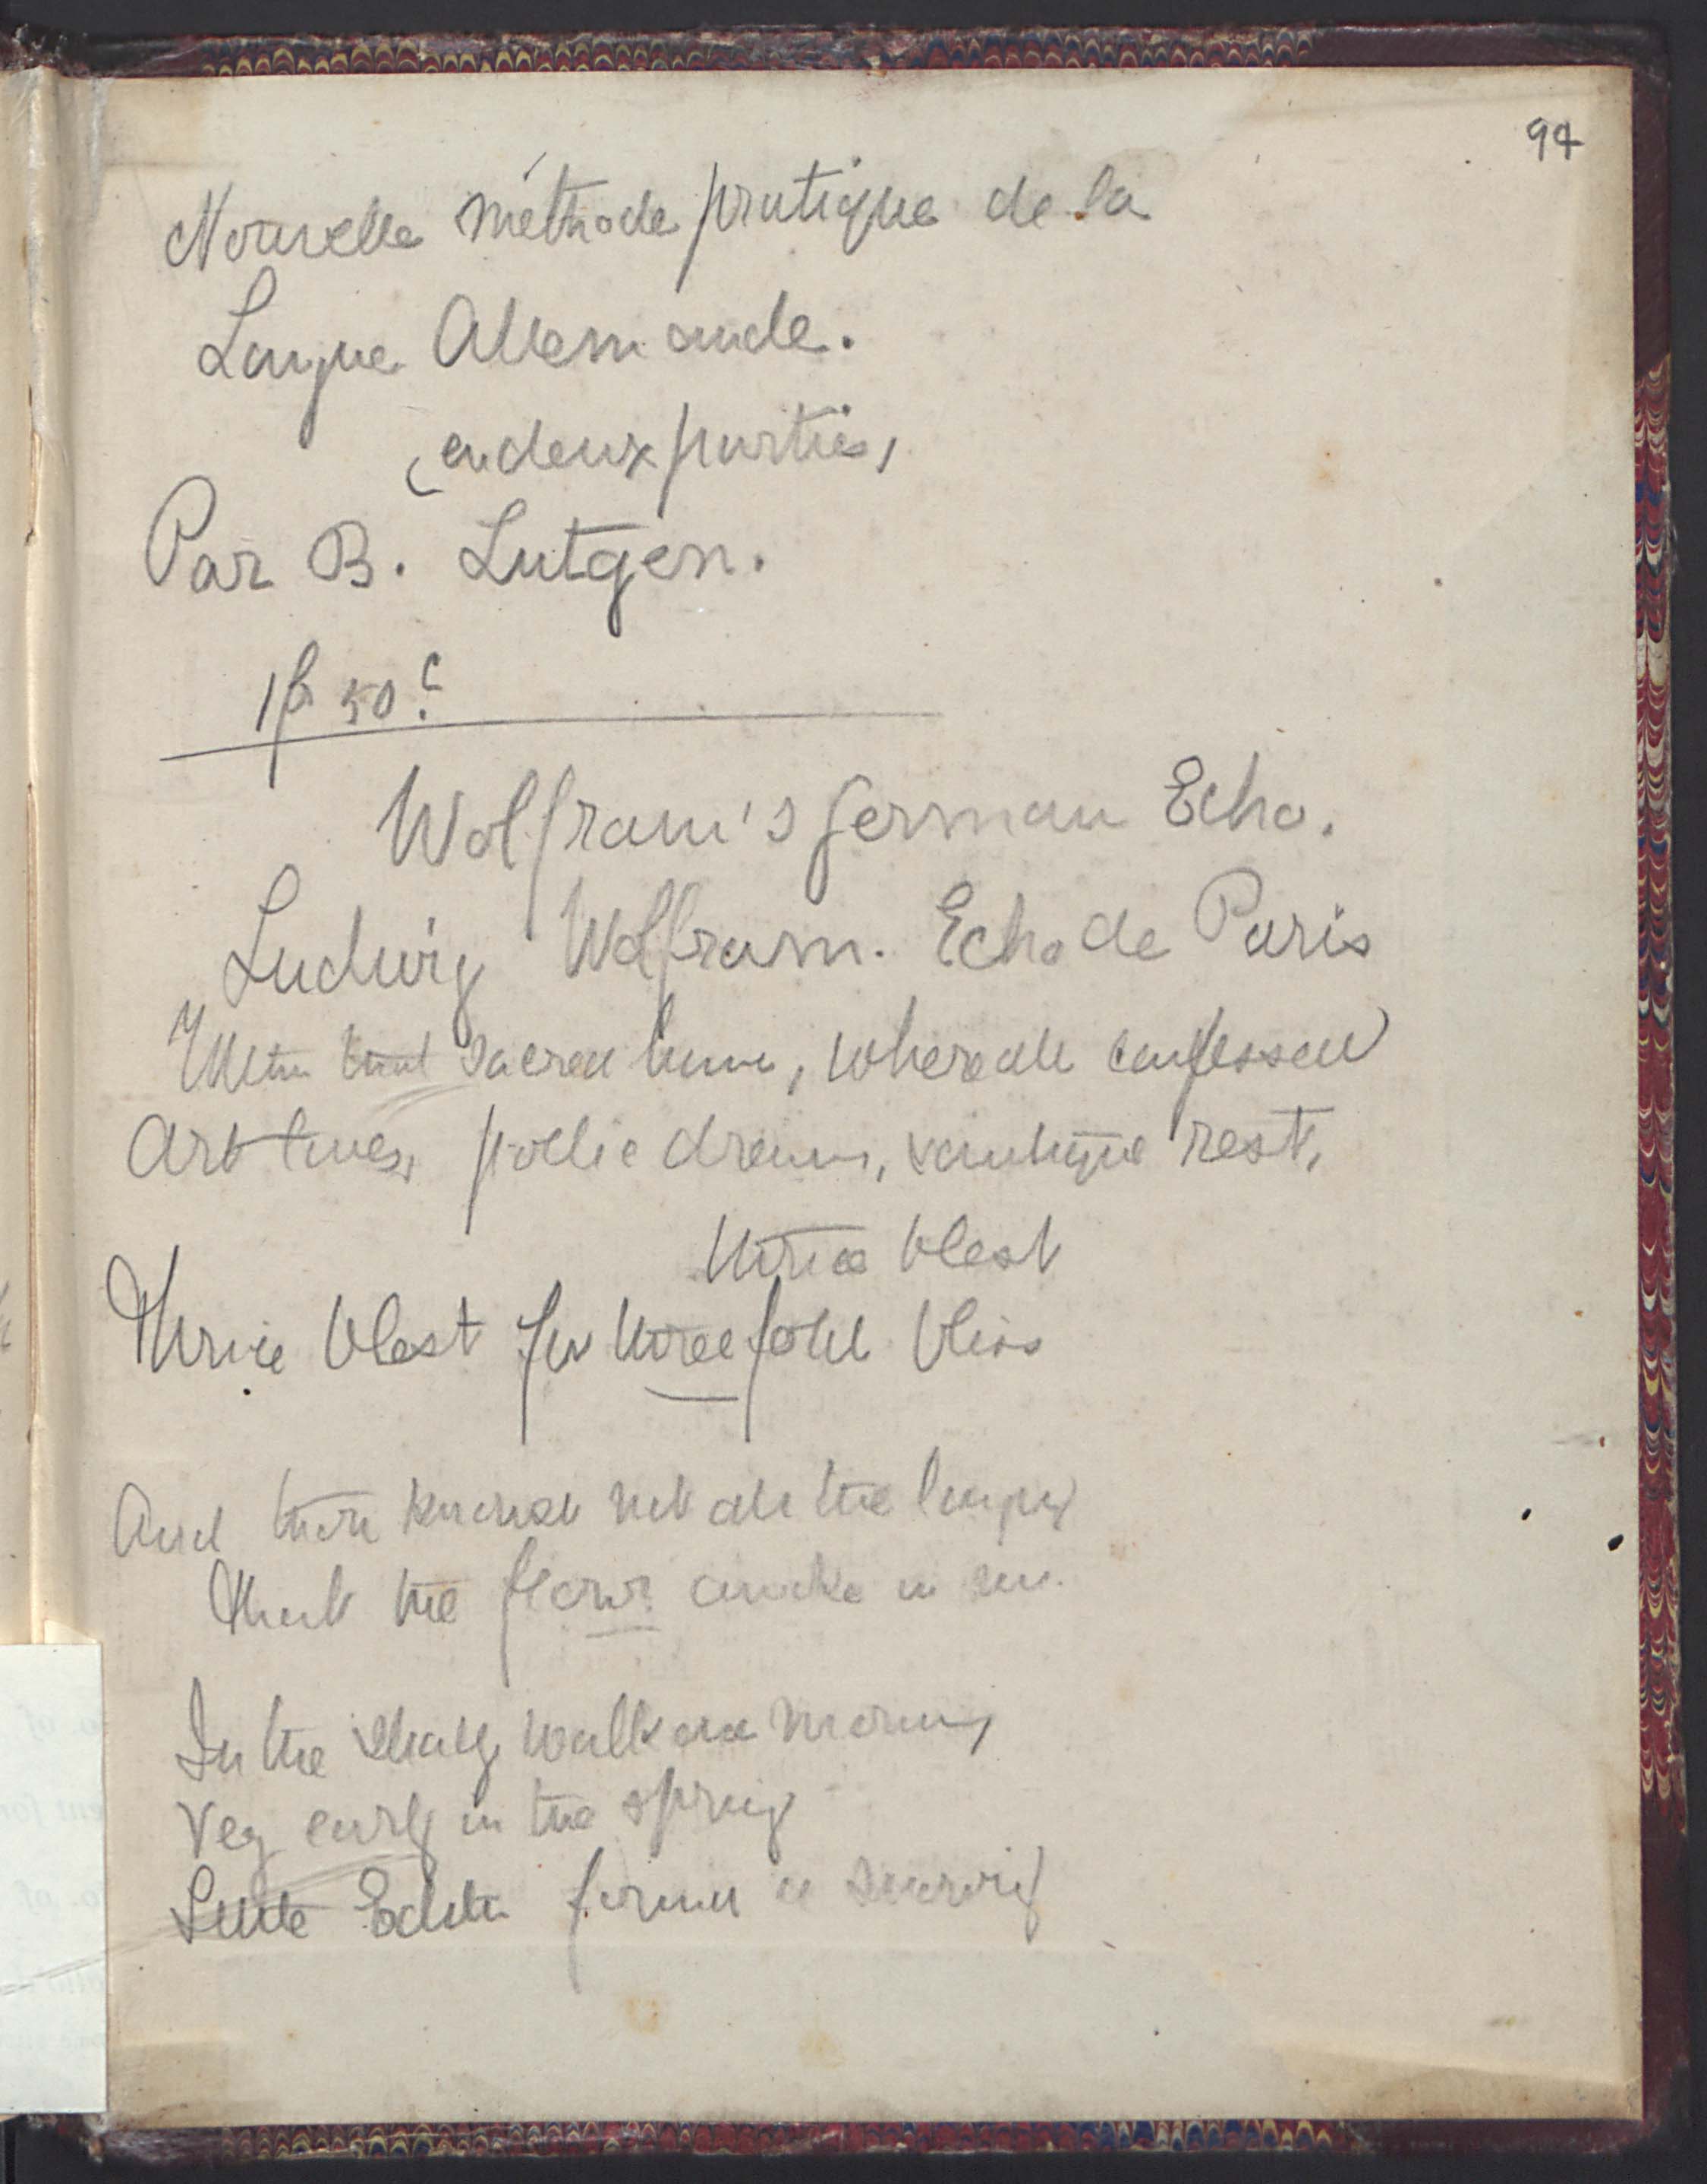 94
Nouvelle méthode pratique de la
Langue Allemande.
(en deux parties,
Par B. Lutgen.
1f 50c
Wolfram's German Echo.
Ludwig Wolfram. Echo de Paris
Within that sacred, where all confessed
Art lives, dream, rest,
thrice blest
Thrice blest for threefold bliss
And thou knowest not all the longing
That the flower awake in me.
In the shady walk one morning
Very early in the spring
Little Edith a